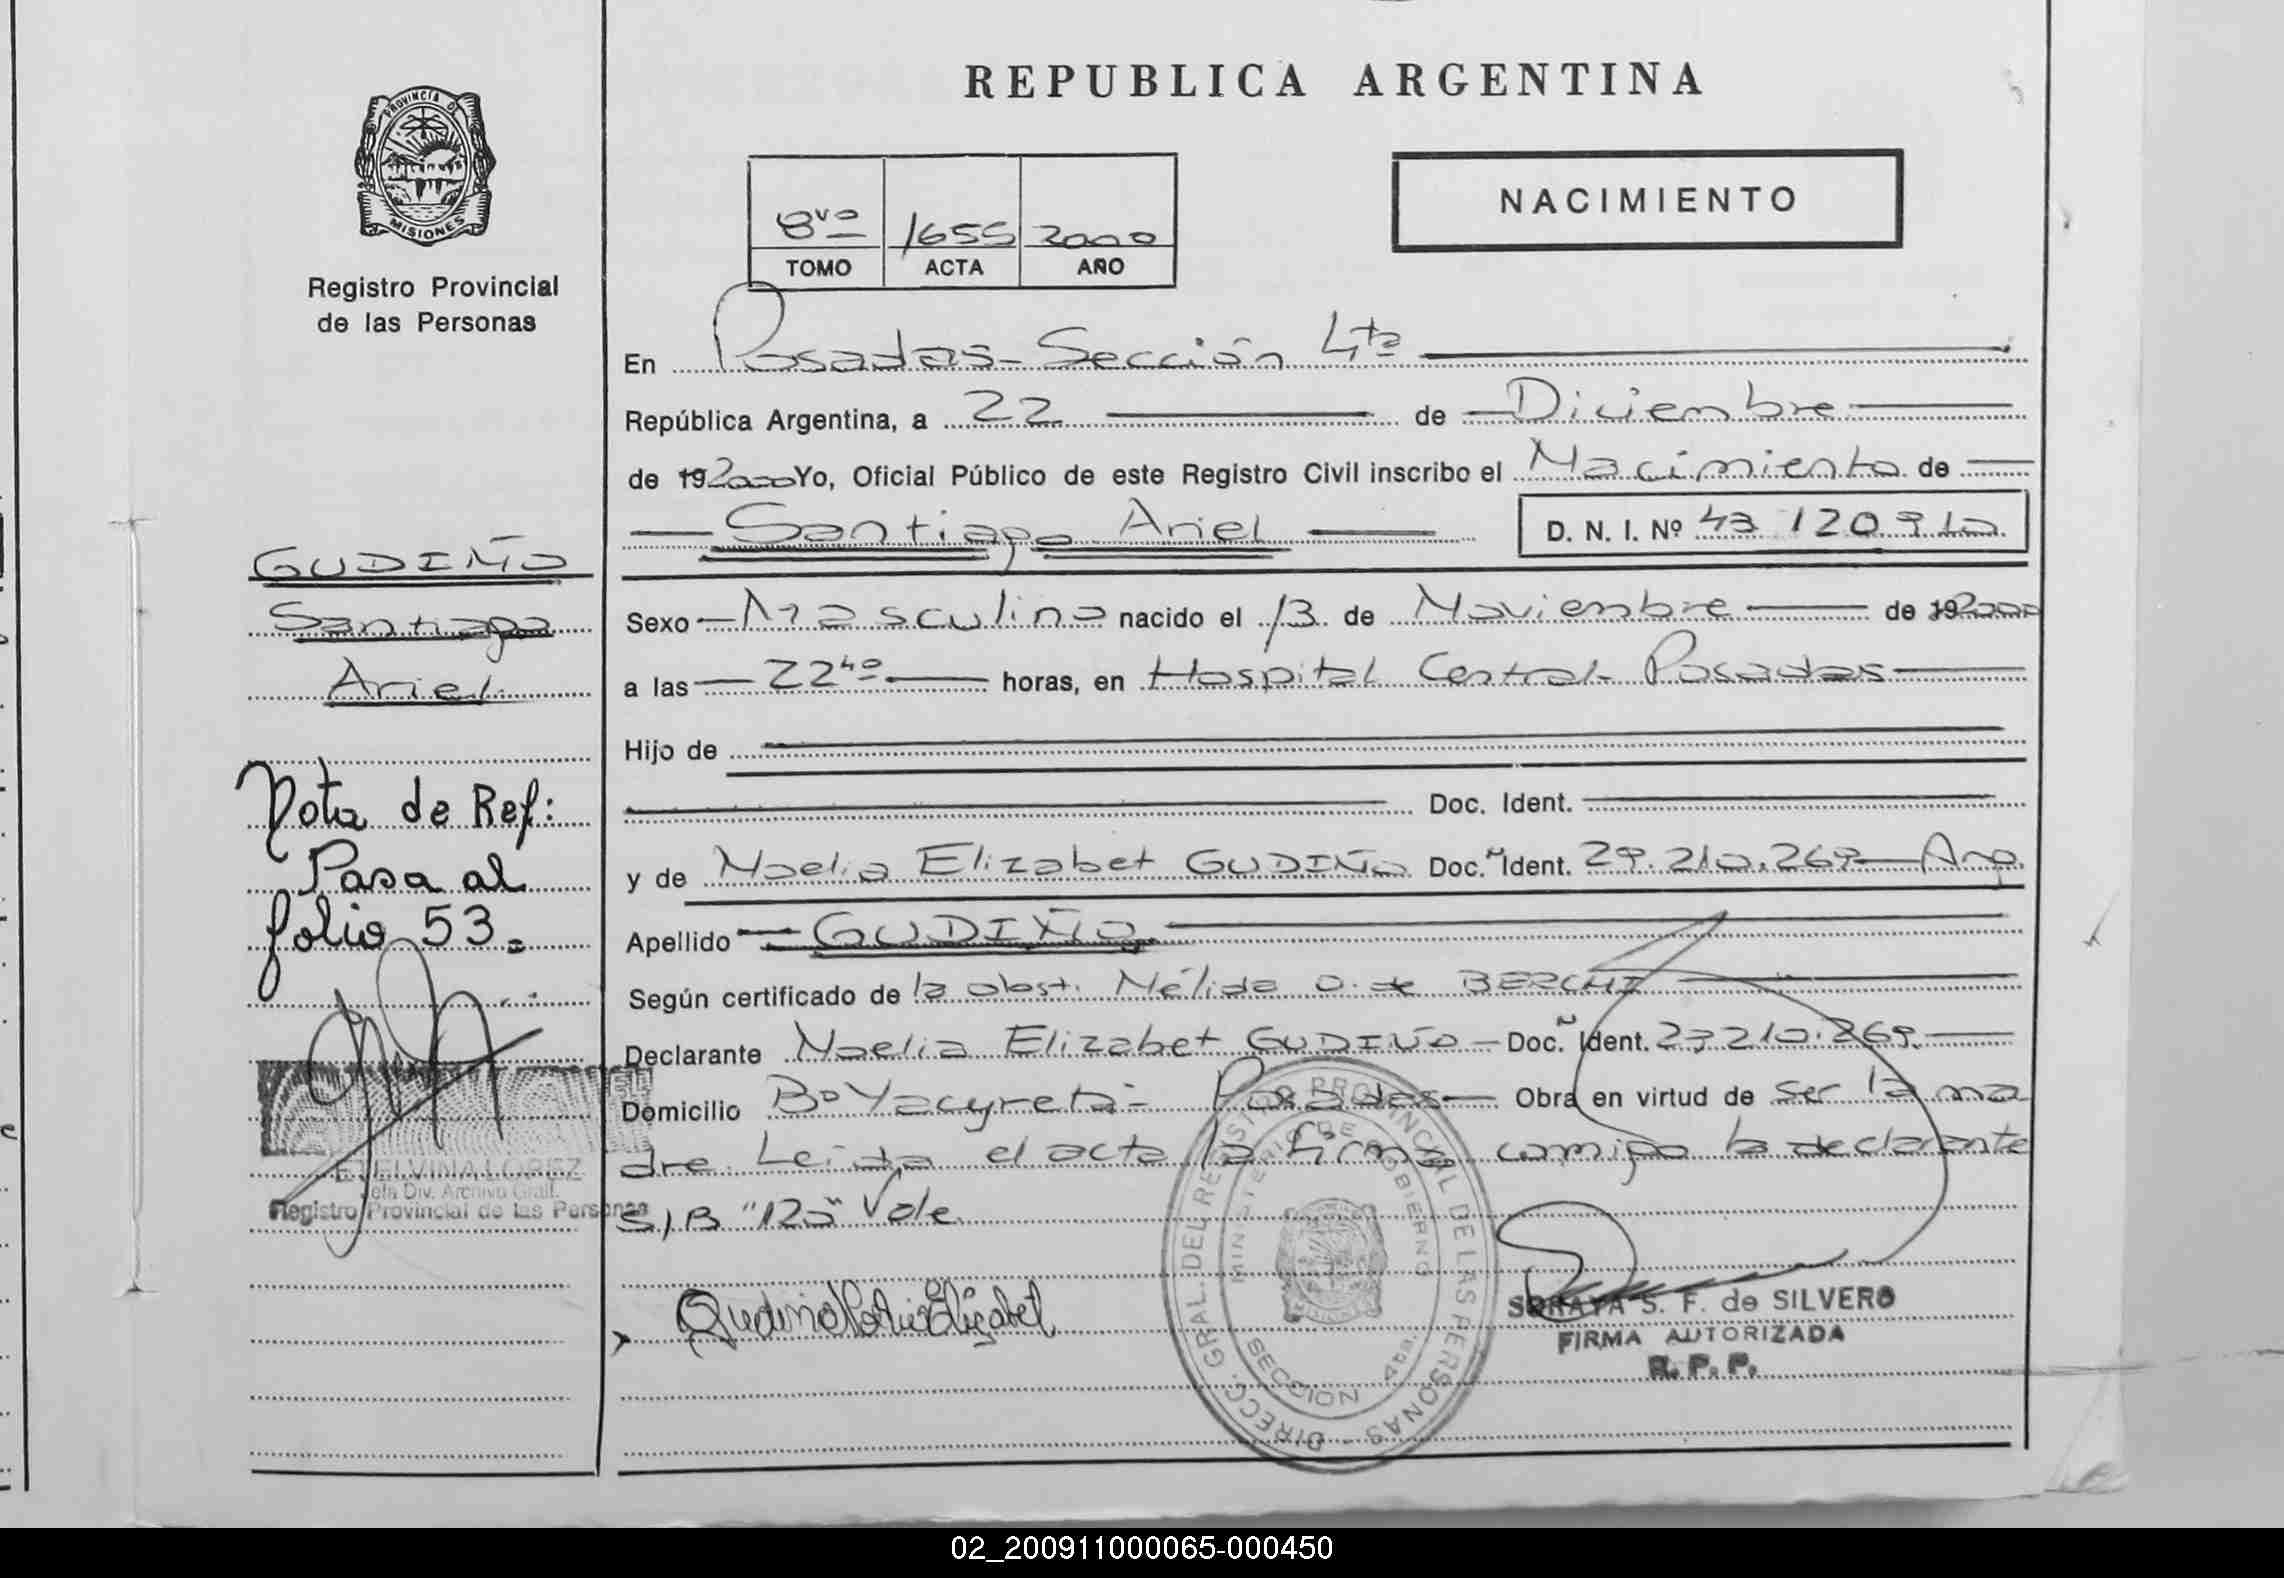 REPUBLICA ARGENTINA
PROVINCIA DE
MISIONES
Registro Provincial
de las Personas
8vo 1655 2000
TOMO ACTA AÑO
NACIMIENTO
En Posadas - Sección 4ta
República Argentina, a 22 de Diciembre
de 192000 Yo, Oficial Público de este Registro Civil inscribo el Nacimiento de
Santiago Ariel D. N. I. Nº 43 120 910
GUDIÑO
Santiago
Ariel
Sexo Masculino nacido el 13 de Noviembre de 192000
a las 22 40 horas, en Hospital Central - Posadas
Hijo de
Doc. Ident.
y de Noelia Elizabet GUDIÑO Doc. Ident. 29.210.269 - Arg.
Apellido GUDIÑO
Según certificado de la obst. Nélida O. de BERCHI
Declarante Noelia Elizabet GUDIÑO - Doc. Ident. 210.269.
Domicilio Bº Yacyretá - Posadas Obra en virtud de ser la ma
dre. Leída el acta la firma conmigo la declarante
S/B "123" Vale
Nota de Ref:
Pasa al
folio 53.
ETELVINA LOPEZ
Jefa Div. Archivo Gral.
Registro Provincial de las Personas
Gudiño Noelia Elizabet
DIRECC. GRAL. DEL REGISTRO PROVINCIAL DE LAS PERSONAS
MINISTERIO DE GOBIERNO
SECCION 4ta.
SORAYA S. F. de SILVERO
FIRMA AUTORIZADA
R. P. P.
02_200911000065-000450